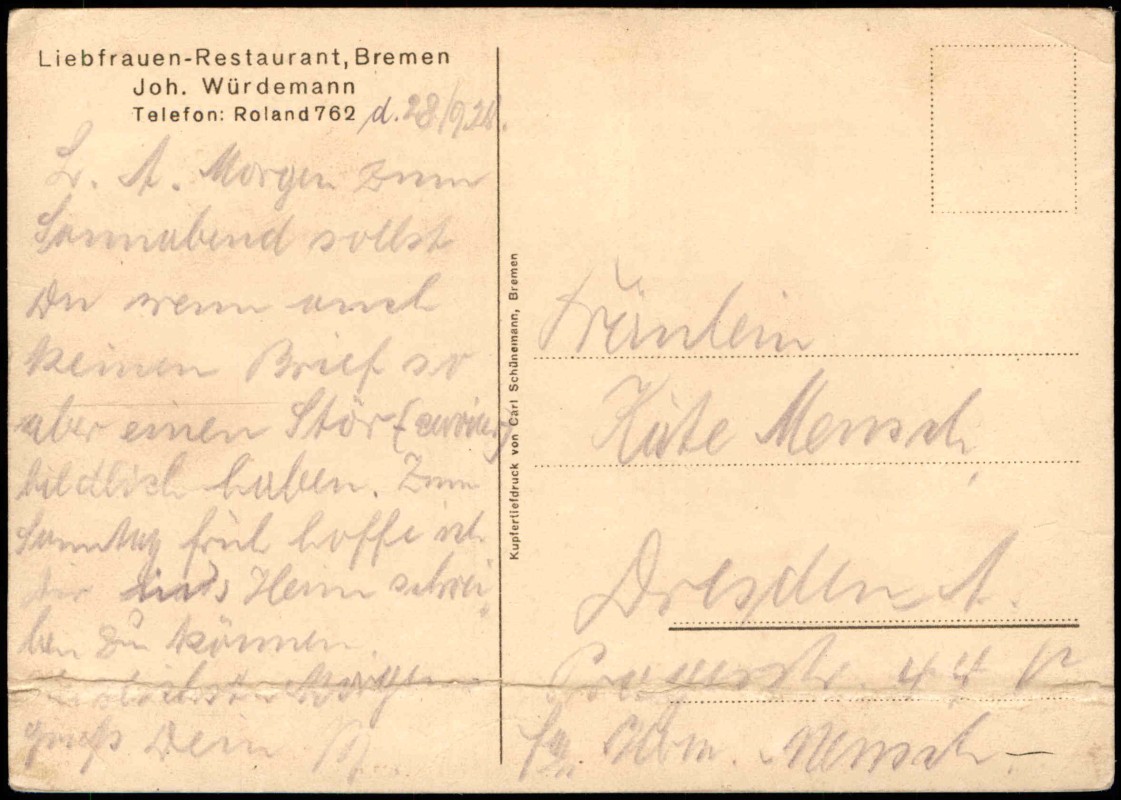 Liebfrauen-Restaurant, Bremen
Joh. Würdemann
Telefon: Roland 762
d. 28/9.28.
L. A. Morgen zum
Sonnabend sollst
Du wenn auch
keinen Brief so
aber einen Stör
bildlich haben. Zum
Sonntag früh hoffe ich
Dir ins Heim schrei-
ben zu können.
gruß Dein
Kupfertiefdruck von Carl Schünemann, Bremen
Fräulein
Käte Mensch,
Dresden A.
Pragerstr 44
Mensch.